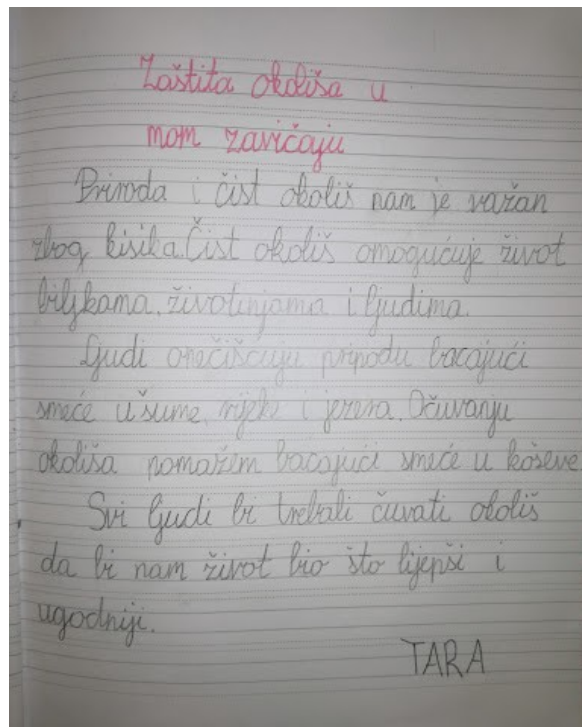 Zaštita okoliša u
mom zavičaju
Priroda i čist okoliš nam je važan
zbog kisika. Čist okoliš omogućuje život
biljkama, životinjama i ljudima.
Ljudi onečišćuju prirodu bacajući
smeće u šume, rijeke i jezera. Očuvanju
okoliša pomažem bacajući smeće u koševe
Svi ljudi bi trebali čuvati okoliš
da bi nam život bio što lijepši i
ugodniji.
TARA